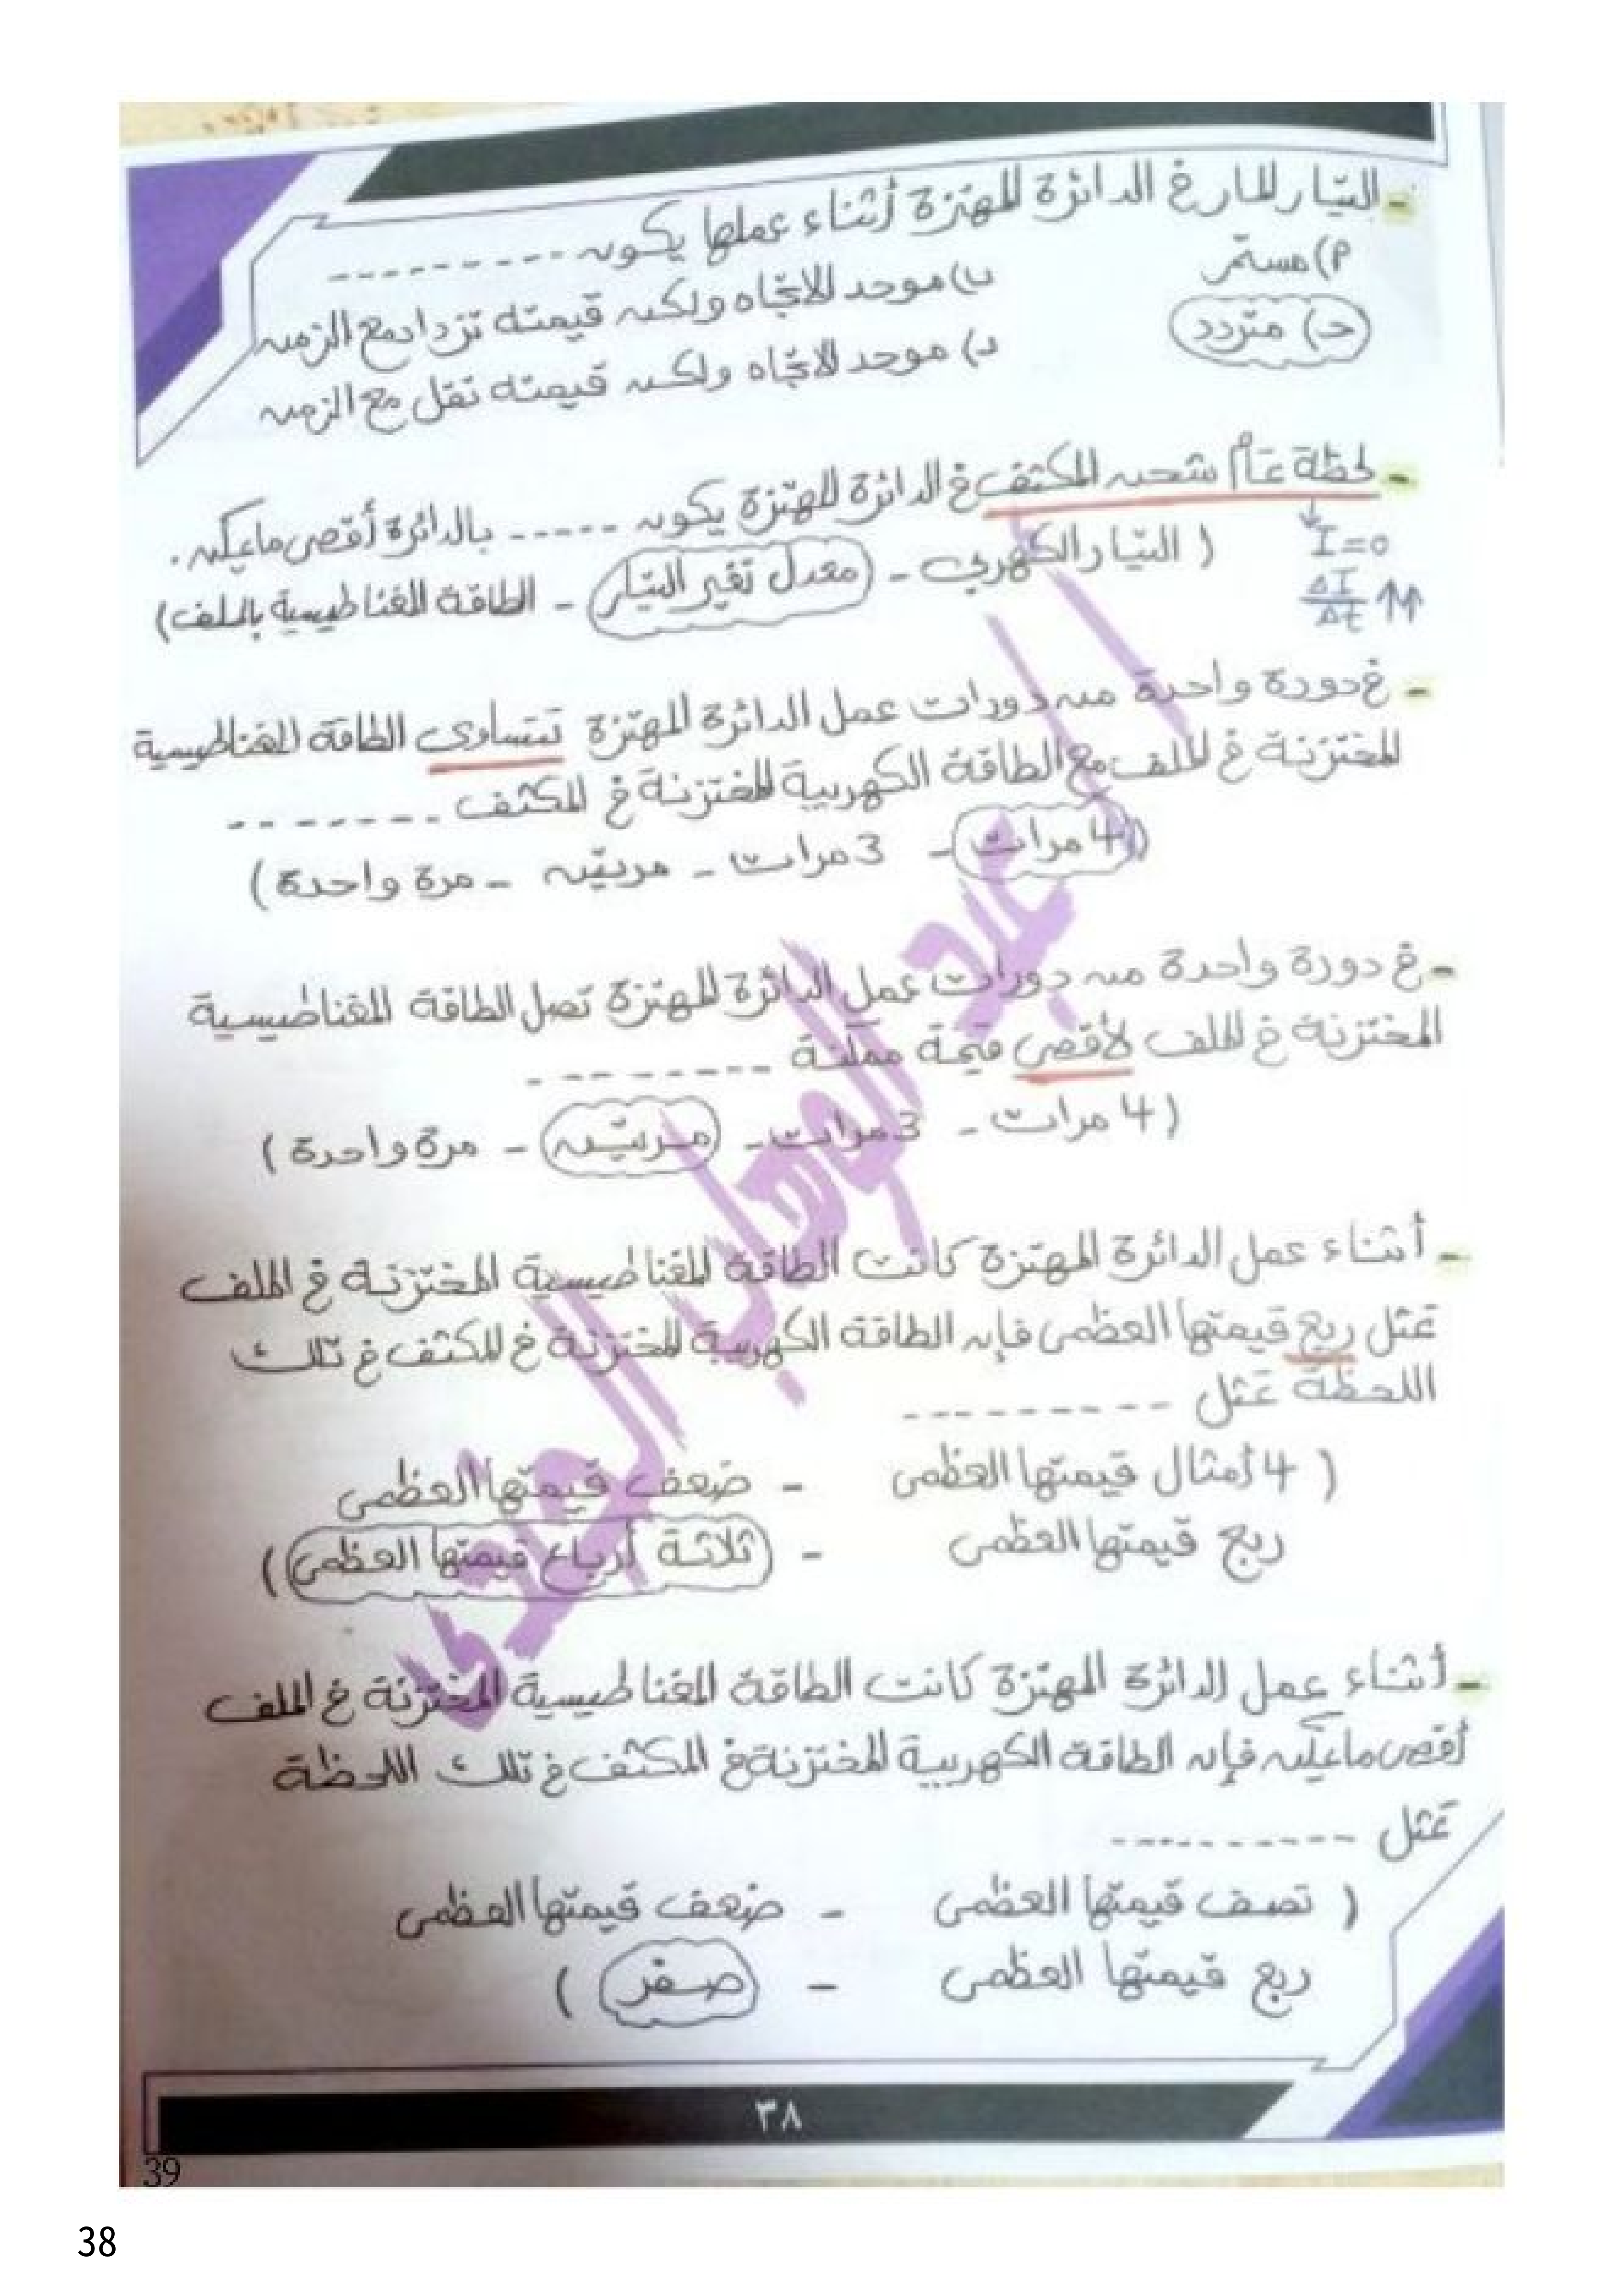 - التيار المار في الدائرة المهتزة أثناء عملها يكون ---------
أ) مستمر
ب) موحد الاتجاه ولكن قيمته تزداد مع الزمن
جـ) متردد
د) موحد الاتجاه ولكن قيمته تقل مع الزمن
- لحظة تمام شحن المكثف في الدائرة المهتزة يكون ----- بالدائرة أقصى ما يمكن .
I=0
( التيار الكهربي - معدل تغير التيار - الطاقة المغناطيسية بالملف )
ΔI/Δt ↑↑
- في دورة واحدة من دورات عمل الدائرة المهتزة تتساوى الطاقة المغناطيسية
المختزنة في الملف مع الطاقة الكهربية المختزنة في المكثف --------
( 4 مرات - 3 مرات - مرتين - مرة واحدة )
- في دورة واحدة من دورات عمل الدائرة المهتزة تصل الطاقة المغناطيسية
المختزنة في الملف لأقصى قيمة ممكنة ---------
( 4 مرات - 3 مرات - مرتين - مرة واحدة )
- أثناء عمل الدائرة المهتزة كانت الطاقة المغناطيسية المختزنة في الملف
تمثل ربع قيمتها العظمى فإن الطاقة الكهربية المختزنة في المكثف في تلك
اللحظة تمثل ---------
( 4 أمثال قيمتها العظمى - ضعف قيمتها العظمى
ربع قيمتها العظمى - ثلاثة أرباع قيمتها العظمى )
- أثناء عمل الدائرة المهتزة كانت الطاقة المغناطيسية المختزنة في الملف
أقصى ما يمكن فإن الطاقة الكهربية المختزنة في المكثف في تلك اللحظة
تمثل ----------
( نصف قيمتها العظمى - ضعف قيمتها العظمى
ربع قيمتها العظمى - صفر )
٣٨
39
38